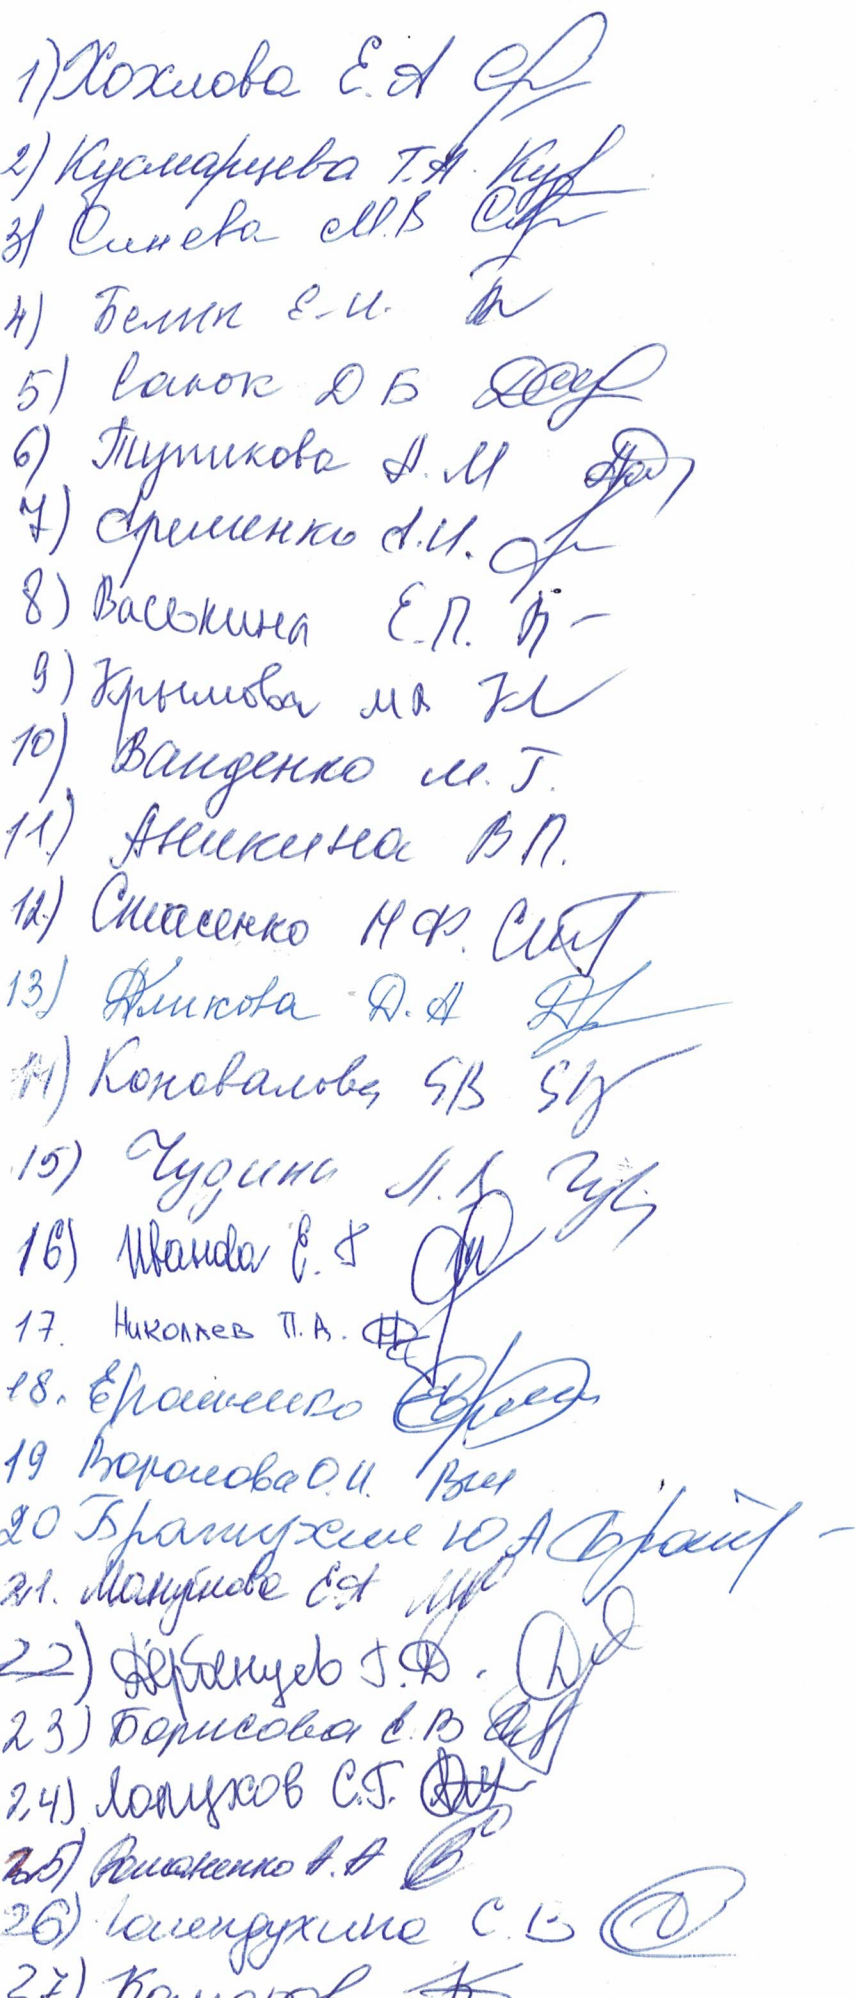 1) Хохлова Е.А
2) Кусмарцева Т.А.
3) Синева М.В
4) Белик Е.И.
5) Санок Д Б
6) Тупикова А.М
7) Еременко А.И.
8) Васькина Е.П.
9) Крымова М В
10) Ванденко М.Г.
11) Аникина В П.
12) Стасенко Н Ф.
13) Аликова Д.А
14) Коновалова ЕВ
15) Чудина Л.В
16) Иванова Е.Г
17. Николаев П.А.
18.
19 Воронова О.И.
20 Ю А
21. Е.А
22) Дербенцев Г.Д.
23) Борисова Е.В
24) Лопухов С.Г.
25) Романенко А.А
26) С.В
27)